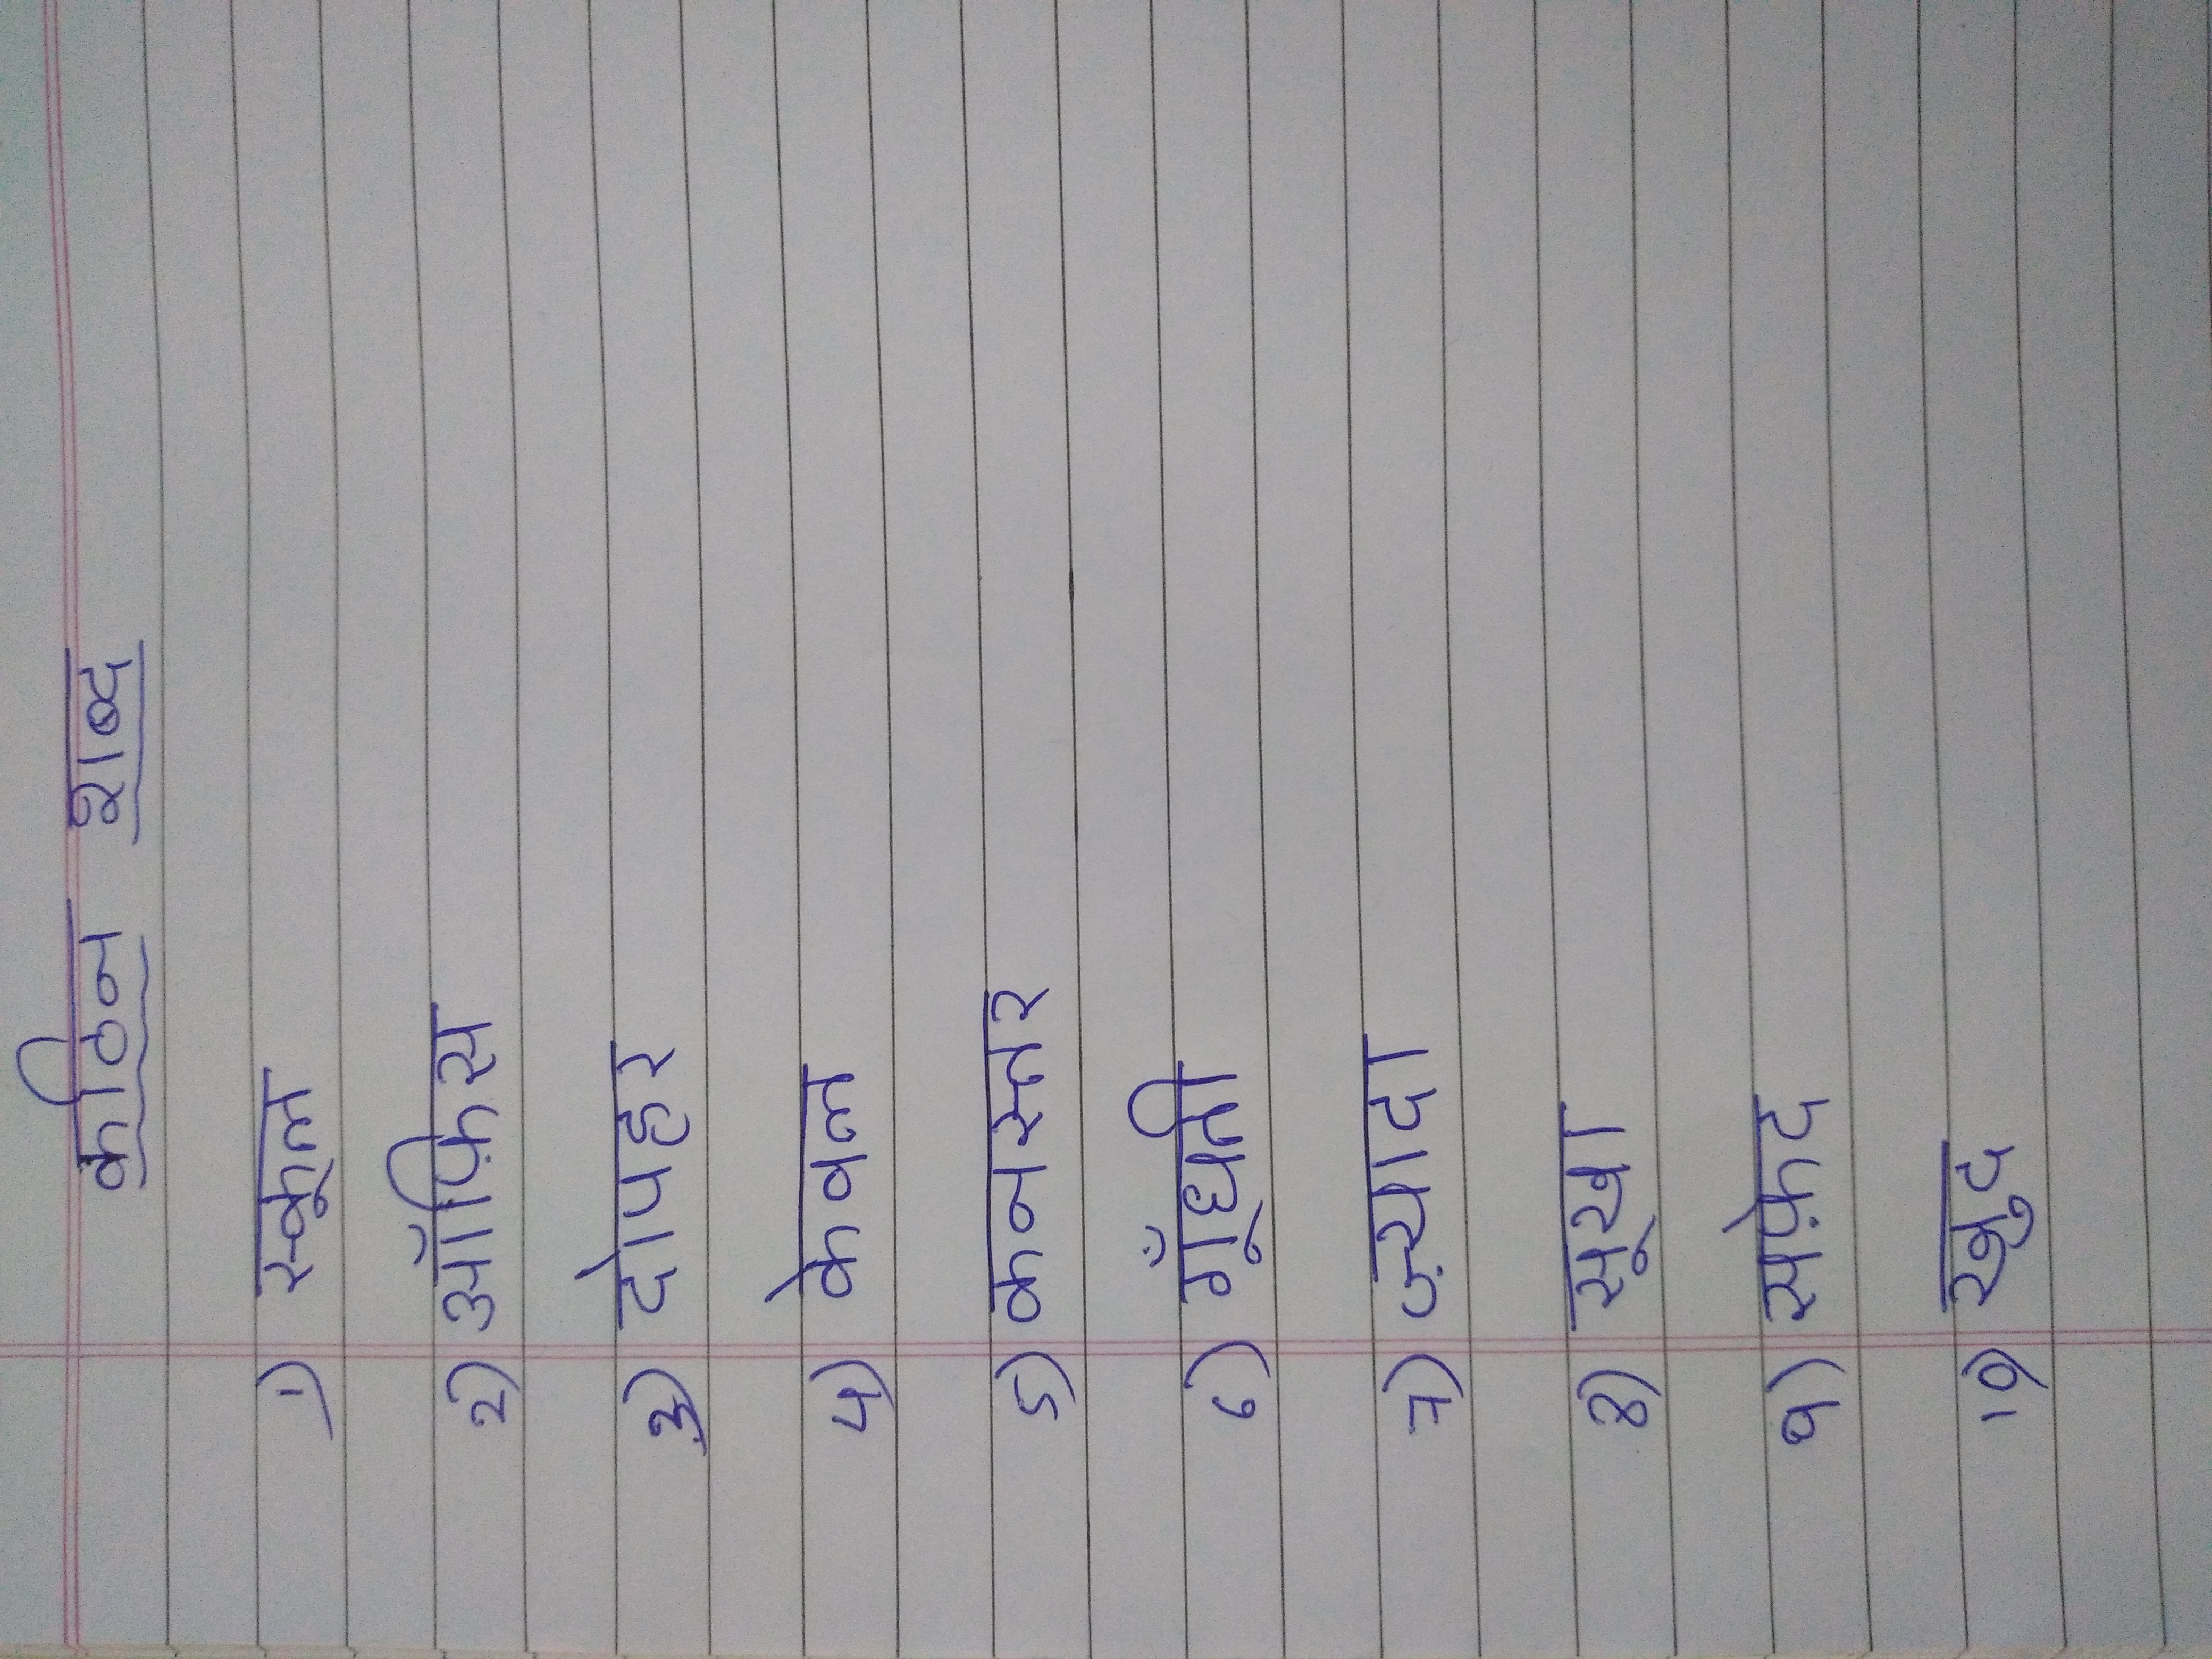 कठिन शब्द
1) स्कूल
2) ऑफिस
3) दोपहर
4) केवल
5) कनस्तर
6) गूँधती
7) ज़्यादा
8) सूखा
9) सफ़ेद
10) खुद